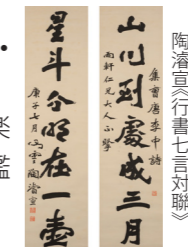 陶濬宣《行書七言对聯》
山川到處成三月
雨軒仁兄大人正
星斗分明在一壺
庚子七月心雲陶濬宣